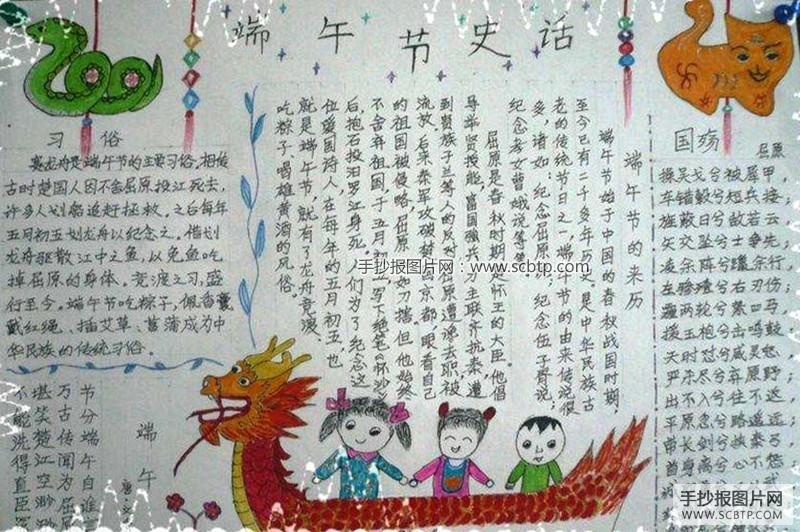 端午节史话
习俗
赛龙舟是端午节的主要习俗。相传
古时楚国人因不舍屈原投江死去,
许多人划船追赶拯救。之后每年
五月初五划龙舟以纪念之。借划
龙舟驱散江中之鱼,以免鱼吃
掉屈原的身体。竞渡之习,盛
行至今。端午节吃粽子,佩香囊
戴红绳、插艾草、菖蒲成为中
华民族的传统习俗。
端午
节分端午自谁
万古传闻为屈
堪笑楚江空渺
不能洗得直臣
端午节的来历
端午节始于中国的春秋战国时期,
至今已有二千多年历史。是中华民族古
老的传统节日之一。端午节的由来传说很
多,诸如:纪念屈原说;纪念伍子胥说;
纪念孝女曹娥说等等。
屈原是春秋时期楚怀王的大臣。他倡
导举贤授能,富国强兵,力主联齐抗秦,遭
到贵族子兰等人的反对,屈原遭馋去职,被
流放。后来秦军攻破楚国京都。眼看自己
的祖国被侵略,屈原如刀割。但他始终
不舍弃祖国,于五月初五写下绝笔《怀沙》
后,抱石投汨罗江身死。人们为了纪念这
位爱国诗人,在每年的五月初五,也
就是端午节,就有了龙舟竞渡、
吃粽子、喝雄黄酒的风俗。
国殇
屈原
操吴戈兮被犀甲,
车错毂兮短兵接;
旌蔽日兮敌若云
矢交坠兮士争先;
凌余阵兮躐余行,
左骖殪兮右刃伤;
霾两轮兮絷四马,
援玉枹兮击鸣鼓;
天时怼兮威灵怒
严杀尽兮弃原野;
出不入兮往不返,
平原忽兮路遥远;
带长剑兮挟秦弓
首身离兮心不惩
手抄报图片网 www.scbtp.com
手抄报图片网
WWW.SCBTP.COM